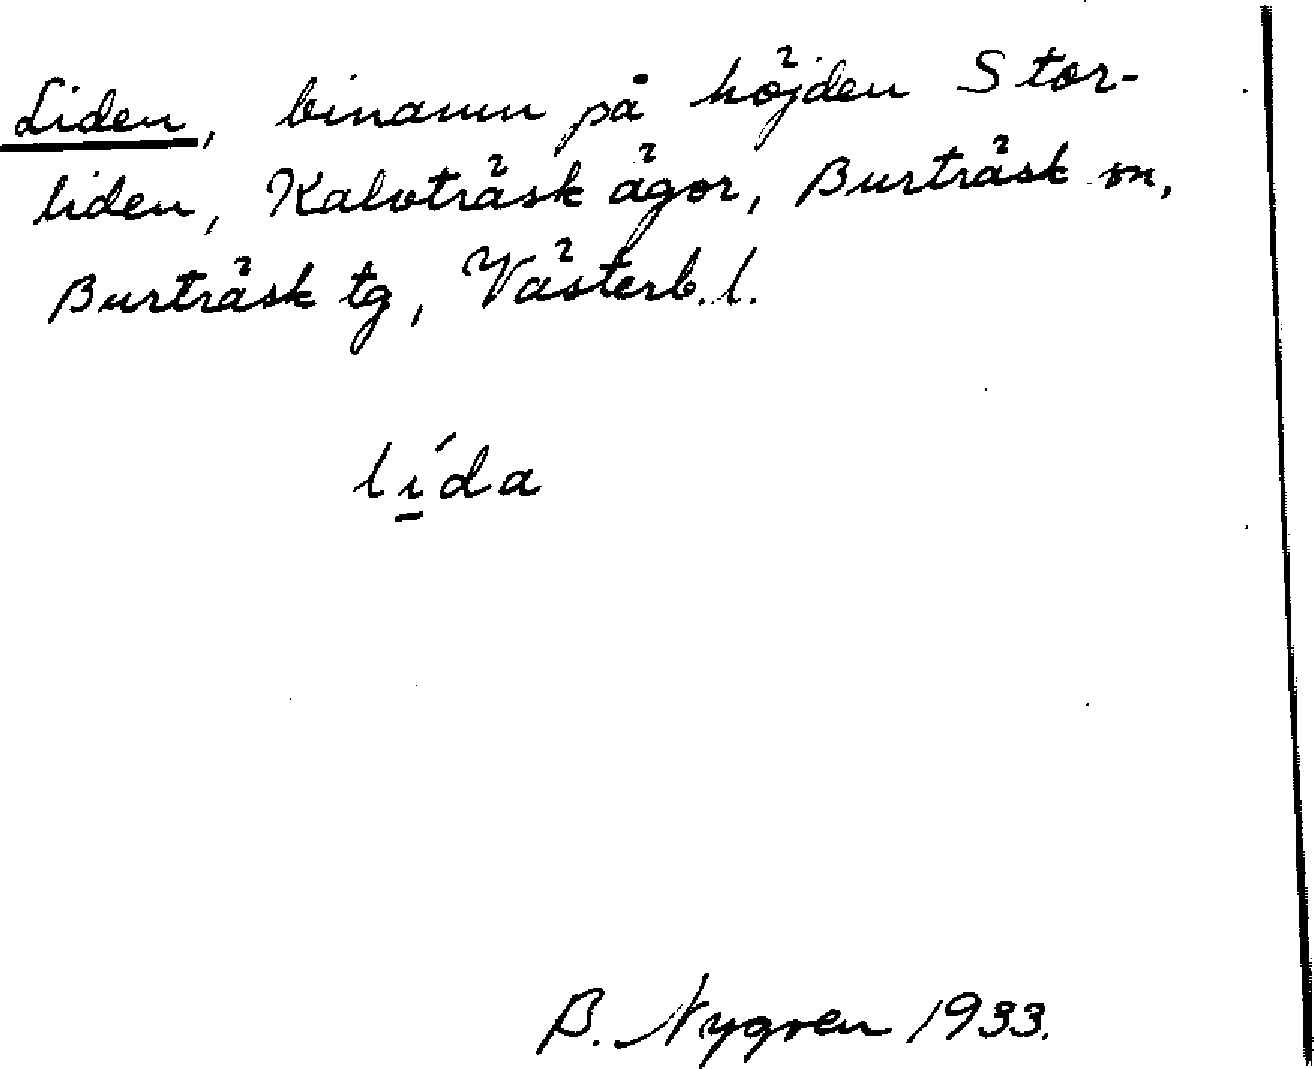 Liden, binamn på höjden Stor-
liden, Kalvträsk ägor, Burträsk sn,
Burträsk tg, Västerb. l.
li̱´da
B. Nygren 1933.